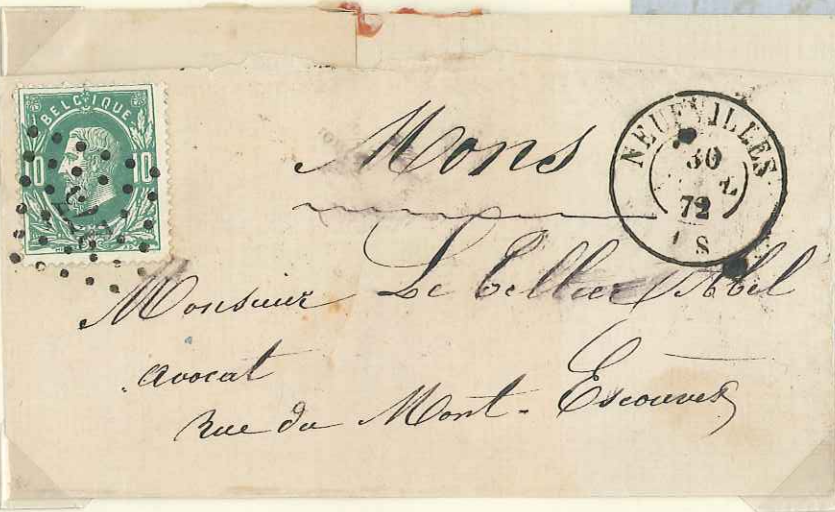 BELGIQUE
10 10
Mons
NEUFVILLES
30
72
S
Monsieur Le Tellier Abel
avocat
Rue du Mont-Escouvet